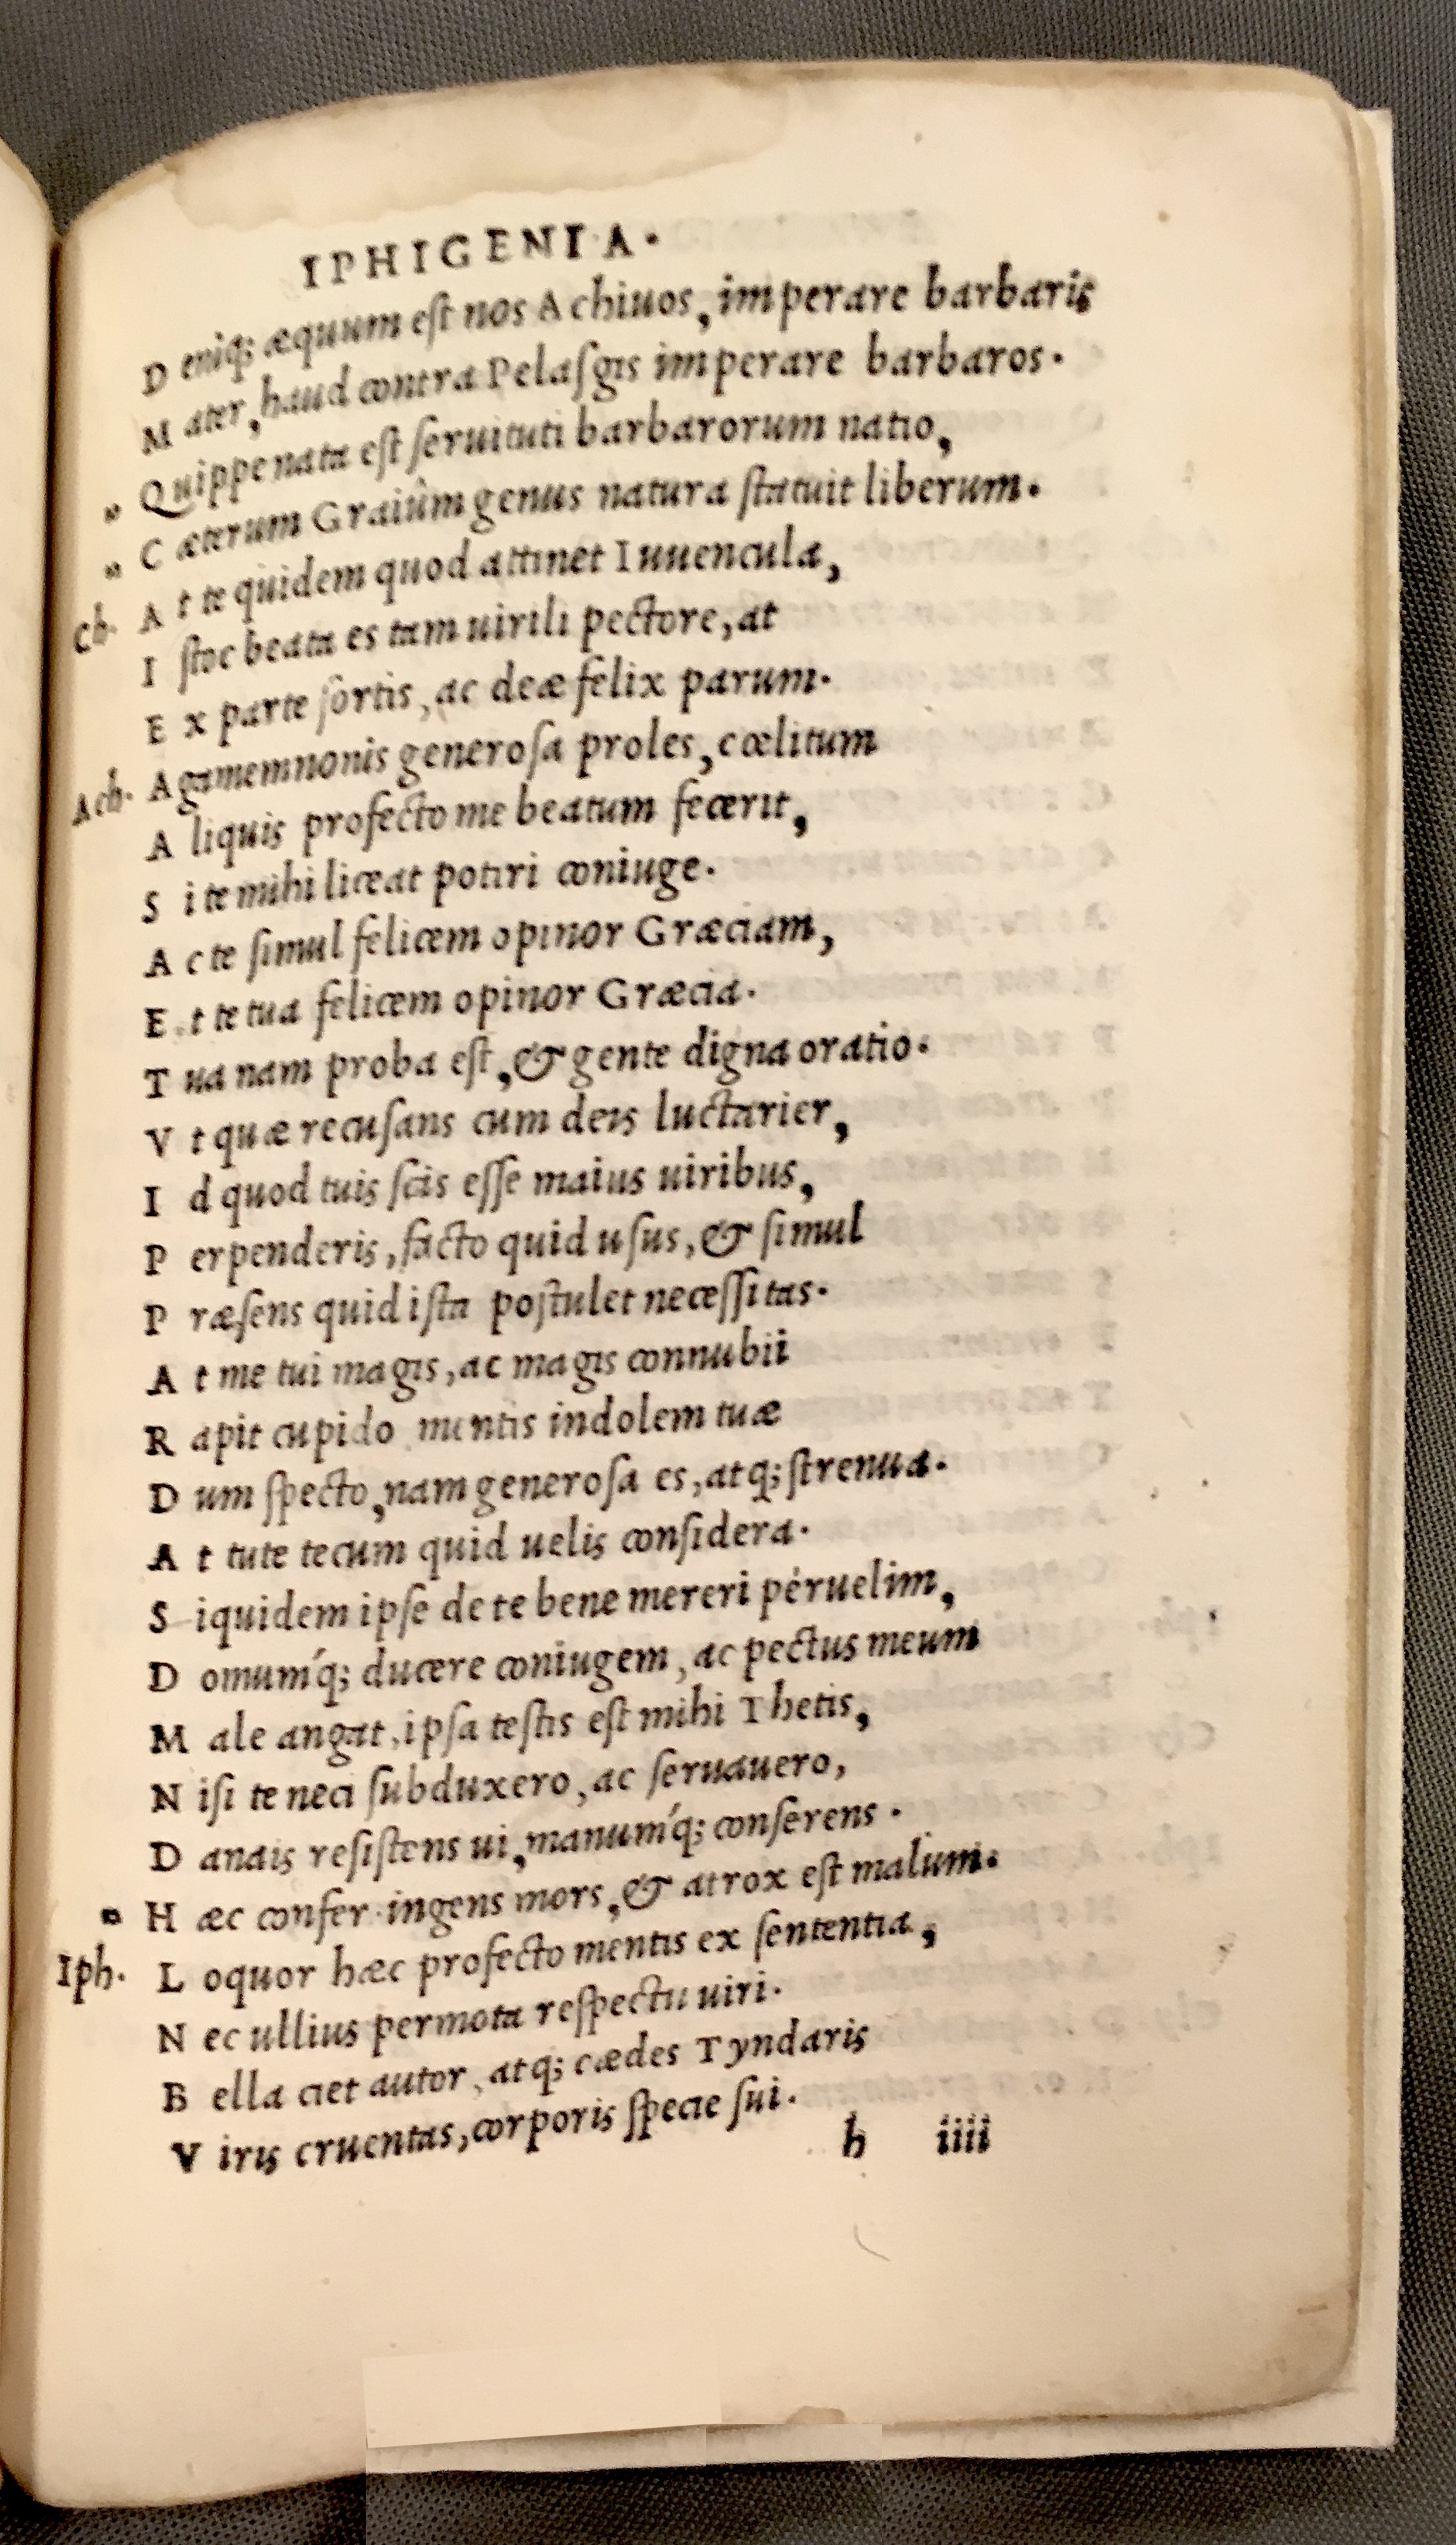 IPHIGENIA.
D eniq; æquum eſt nos Achiuos, imperare barbaris
M ater, haud contra Pelaſgis imperare barbaros.
" Quippe nata eſt ſeruituti barbarorum natio,
" C æterum Graiûm genus natura ſtatuit liberum.
Ch. A t te quidem quod attinet Iuuencula,
I ſtoc beata es tam uirili pectore, at
E x parte ſortis, ac deæ felix parum.
Ach. Agamemnonis generoſa proles, cœlitum
A liquis profecto me beatum fecerit,
S i te mihi liceat potiri coniuge.
A c te ſimul felicem opinor Græciam,
E t te tua felicem opinor Græcia.
T ua nam proba eſt, & gente digna oratio.
V t quæ recuſans cum deis luctarier,
I d quod tuis ſcis eſſe maius uiribus,
P erpenderis, facto quid uſus, & ſimul
P ræſens quid iſta poſtulet neceſſitas.
A t me tui magis, ac magis connubii
R apit cupido mentis indolem tuæ
D um ſpecto, nam generoſa es, atq; ſtrenua.
A t tute tecum quid uelis conſidera.
S iquidem ipſe de te bene mereri péruelim,
D omumq́; ducere coniugem, ac pectus meum
M ale angat, ipſa teſtis eſt mihi Thetis,
N iſi te neci ſubduxero, ac ſeruauero,
D anais reſiſtens ui, manumq́; conſerens.
" H æc confer ingens mors, & atrox eſt malum.
Iph. L oquor hæc profecto mentis ex ſententia,
N ec ullius permota reſpectu uiri.
B ella ciet autor, atq; cædes Tyndaris
V iris cruentas, corporis ſpecie ſui.
h iiii